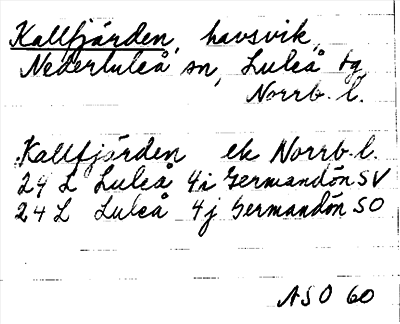 Kallfjärden, havsvik,
Nederluleå sn, Luleå tg
Norrb. l.
Kallfjärden ek Norrb. l.
24 L Luleå 4i Germandön SV
24 L Luleå 4j Germandön SO
ASO 60